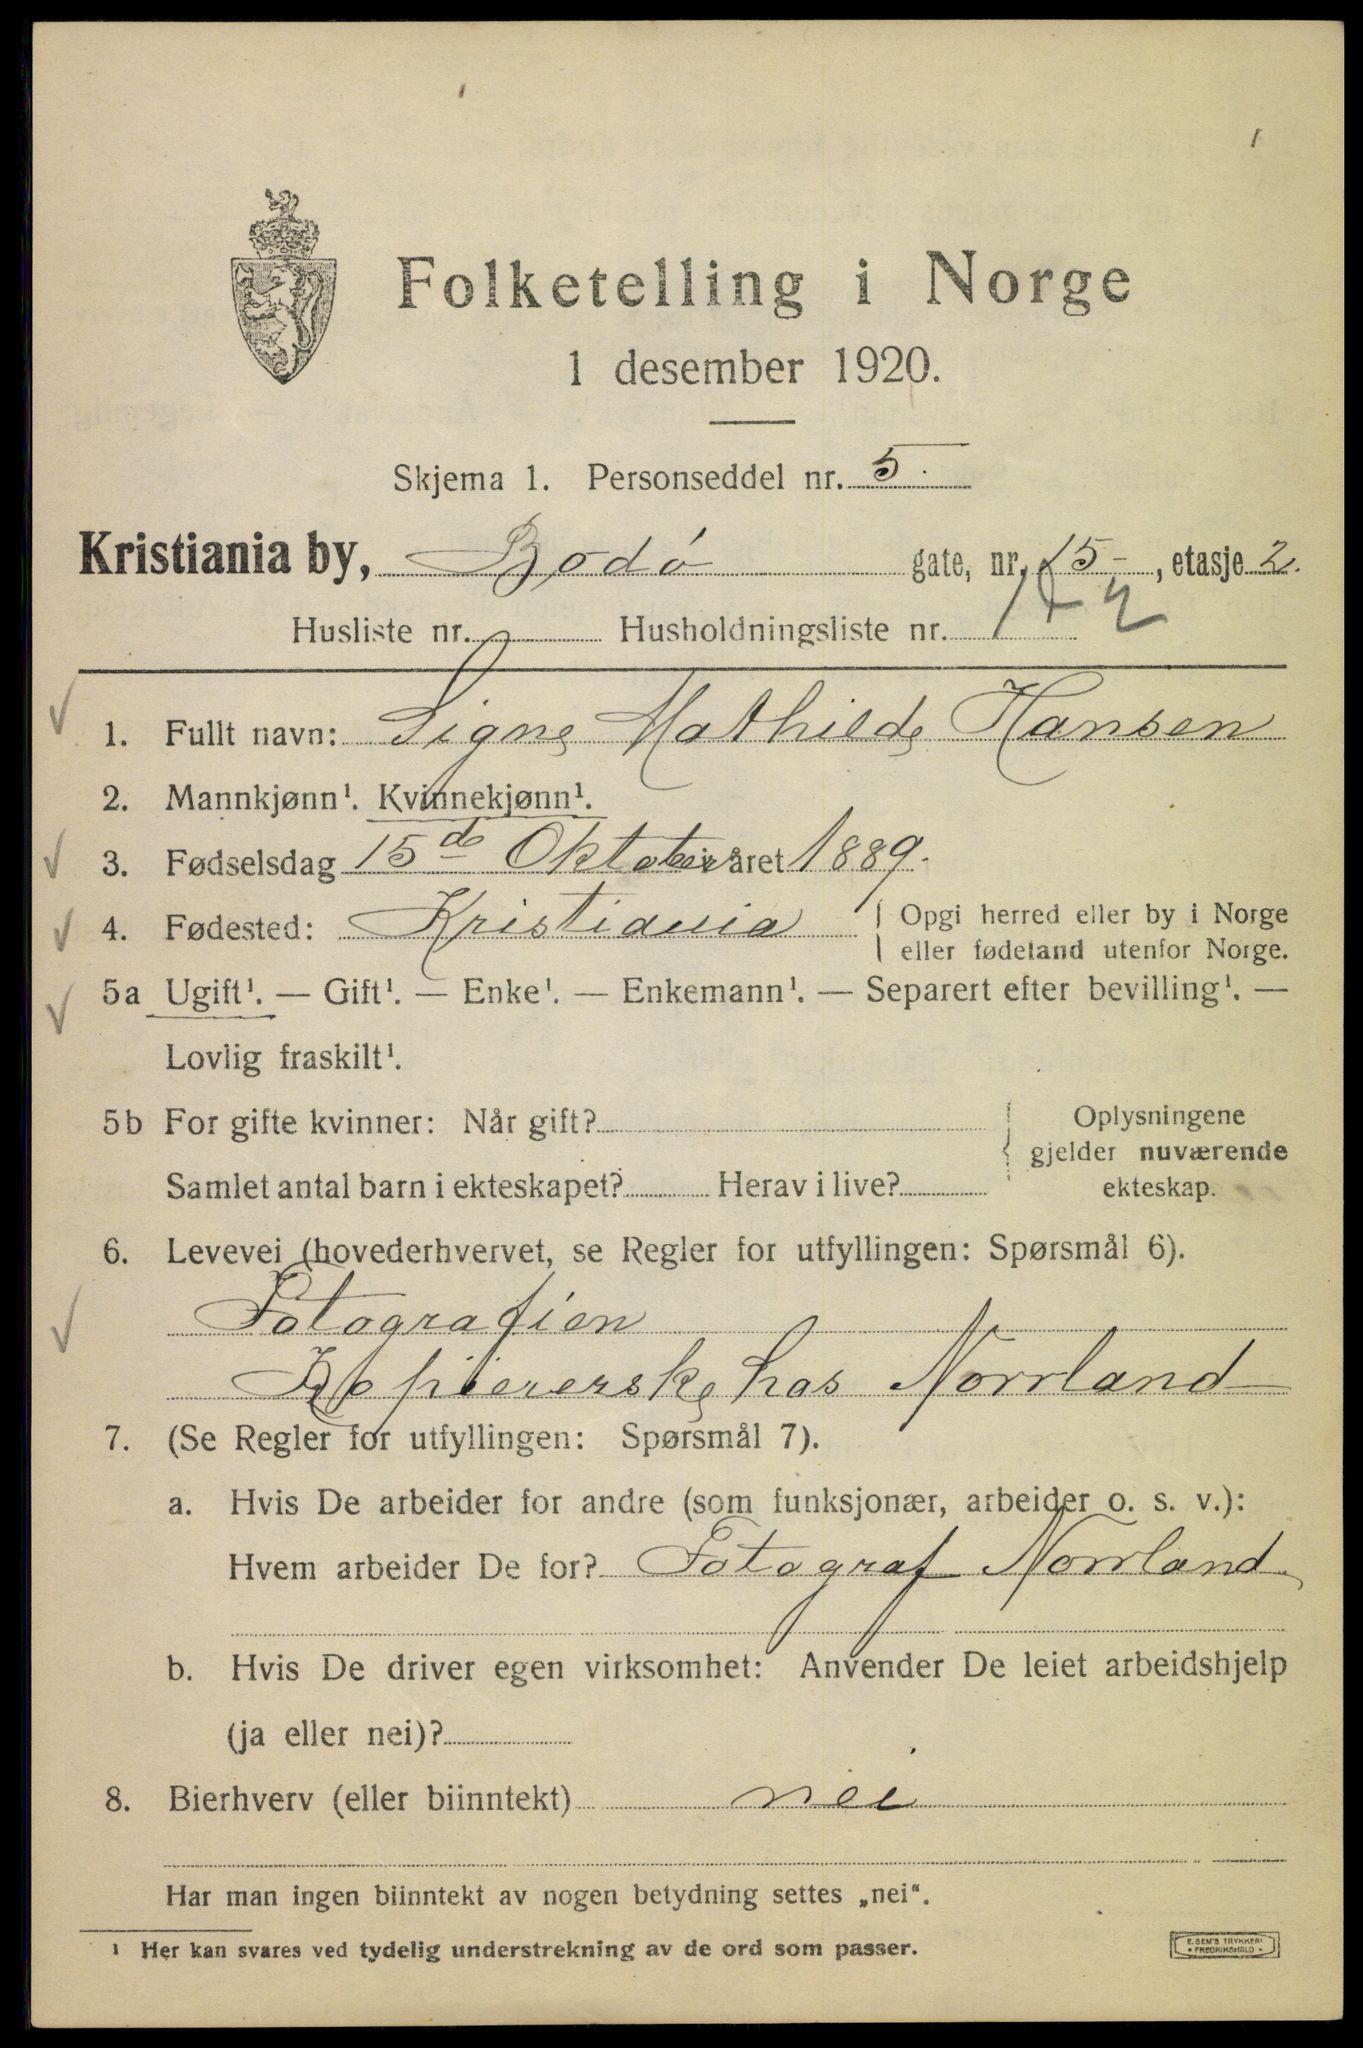 Folketelling i Norge
1 desember 1920.
Skjema 1. Personseddel nr. 5.
Kristiania by, Bodø gate, nr. 15, etasje 2.
Husliste nr. Husholdningsliste nr.
1. Fullt navn: Signe Mathilde Hansen
2. Mannkjønn¹. Kvinnekjønn¹.
3. Fødselsdag 15de Oktober i året 1889.
4. Fødested: Kristiania
Opgi herred eller by i Norge
eller fødeland utenfor Norge.
5a Ugift¹. — Gift¹. — Enke¹. — Enkemann¹. — Separert efter bevilling¹. —
Lovlig fraskilt¹.
5b For gifte kvinner: Når gift?
Samlet antal barn i ekteskapet? Herav i live?
Oplysningene
gjelder nuværende
ekteskap.
6. Levevei (hovederhvervet, se Regler for utfyllingen: Spørsmål 6).
Fotografien
Kopiererske hos Norrland
7. (Se Regler for utfyllingen: Spørsmål 7).
a. Hvis De arbeider for andre (som funksjonær, arbeider o. s. v.):
Hvem arbeider De for? Fotograf Norrland
b. Hvis De driver egen virksomhet: Anvender De leiet arbeidshjelp
(ja eller nei)?
8. Bierhverv (eller biinntekt) nei
Har man ingen biinntekt av nogen betydning settes „nei“.
¹ Her kan svares ved tydelig understrekning av de ord som passer.
E. SEM'S TRYKKERI
FREDRIKSHALD